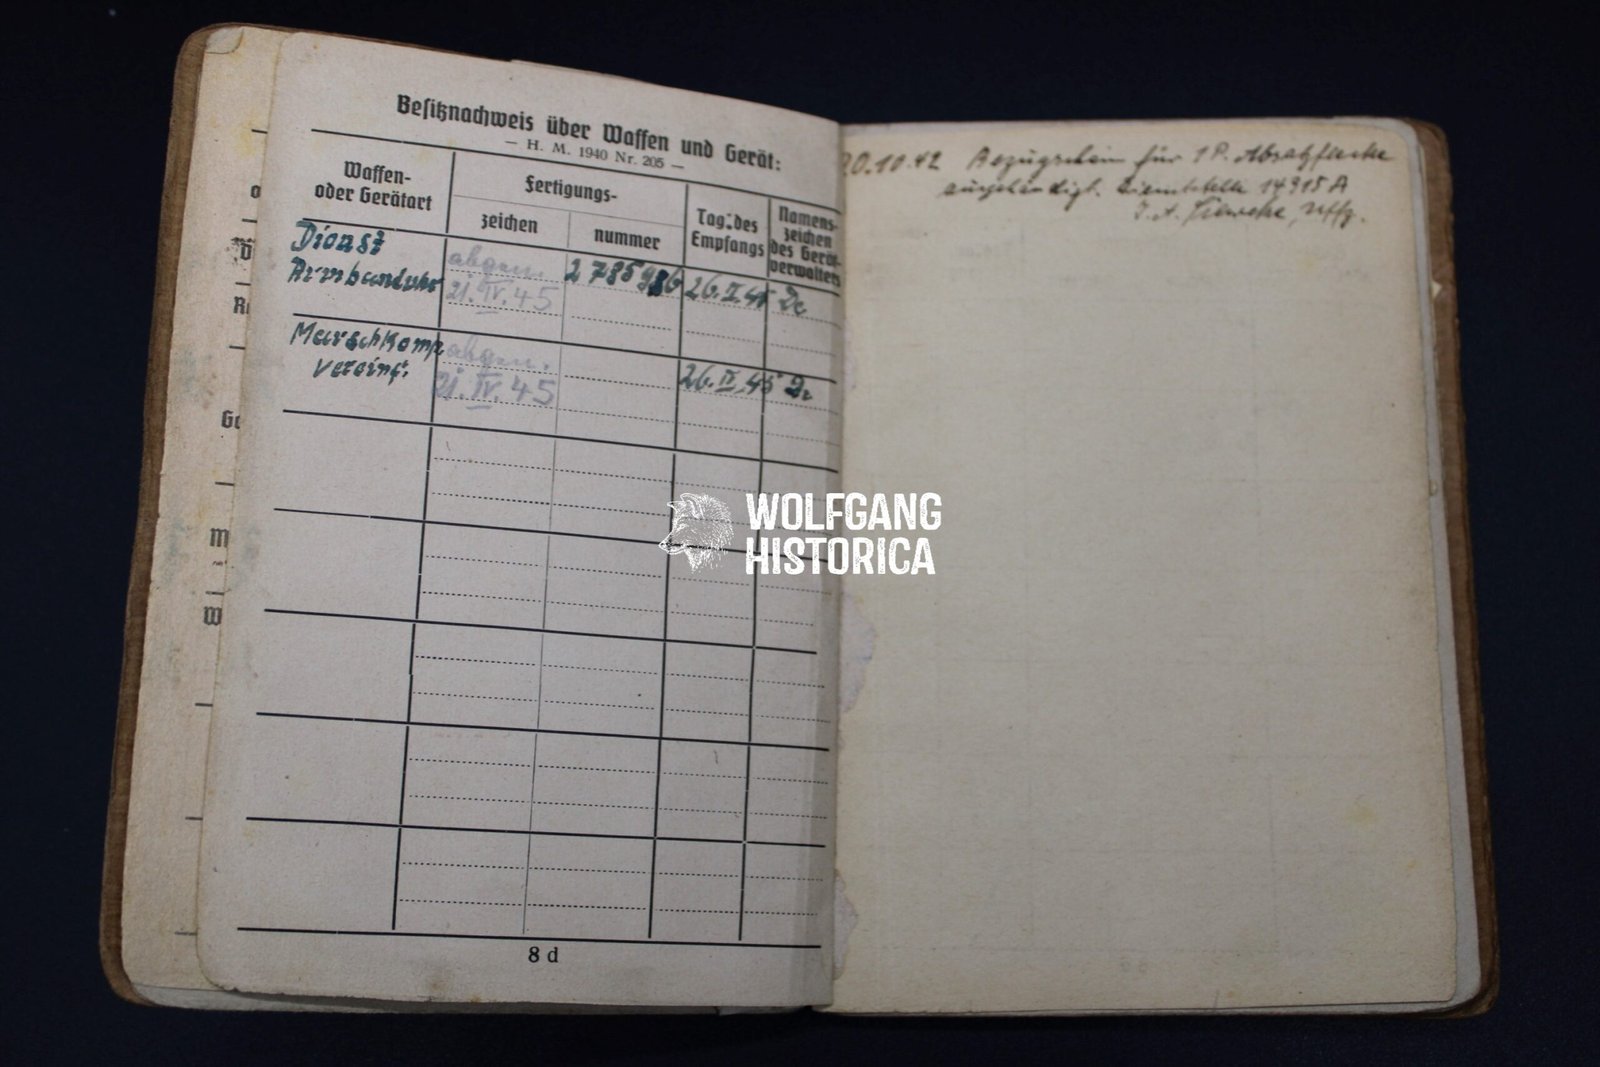 Besitznachweis über Waffen und Gerät:
— H. M. 1940 Nr. 205 —
Waffen-
oder Gerätart
Fertigungs-
zeichen
nummer
Tag des
Empfangs
Namens-
zeichen
des Gerät-
verwalters
Dienst
Armbanduhr
abgen.
21. IV. 45
2785986
26. II. 45
Marschkomp
vereinf.
abgen.
21. IV. 45
26. II. 45
8 d
20.10.42 Bezugschein für 1 P. Absatzflecke
ausgehändigt. Dienststelle 14915 A
I. A. Uffz.
WOLFGANG
HISTORICA
G
M
W